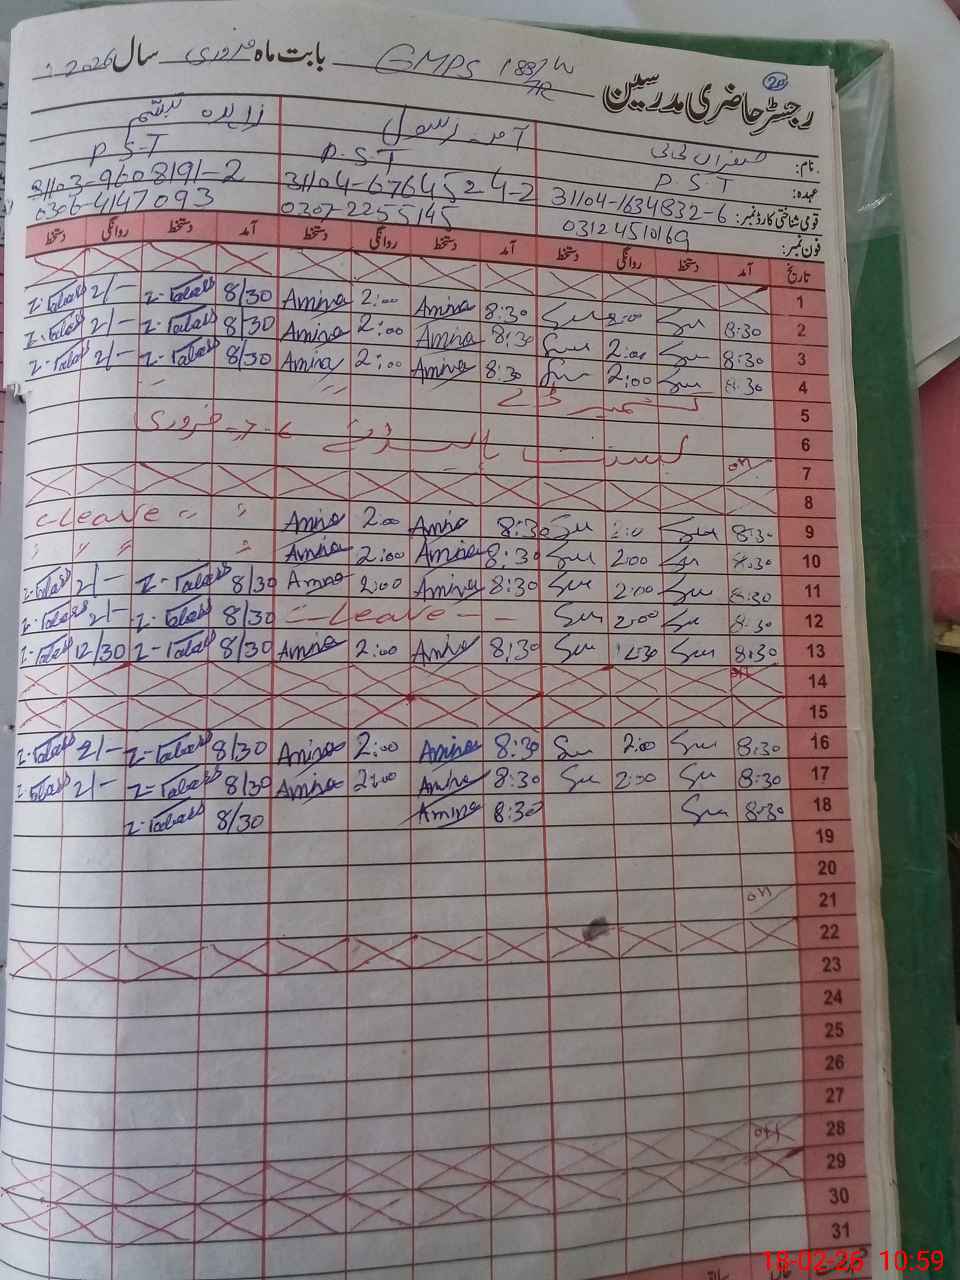 رجسٹر حاضری مدرسین GMPS 188/W بابت ماہ فروری سال 2026
نام: صغراں بی بی آمنہ رسول زاہدہ تبسم
عہدہ: P.S.T P.S.T P.S.T
قومی شناختی کارڈ نمبر: 31104-1634832-6 31104-6764524-2 31103-9608191-2
فون نمبر: 03124510169 0307-2255145 0306-4147093
تاریخ آمد دستخط روانگی دستخط آمد دستخط روانگی دستخط آمد دستخط روانگی دستخط
1
2 8:30 2:00 8:30 Amina 2:00 Amina 8/30 Z-Tabass 2/- Z-Tabass
3 8:30 2:00 8:30 Amina 2:00 Amina 8/30 Z-Tabass 2/- Z-Tabass
4 8:30 2:00 8:30 Amina 2:00 Amina 8/30 Z-Tabass 2/- Z-Tabass
5 کشمیر ڈے " "
6 بسنت ہالیڈے 6-7- فروری
7 OFF
8
9 8:30 8:30 Amina 2:00 Amina " " Leave
10 8:30 2:00 8:30 Amina 2:00 Amina " " " "
11 8:30 2:00 8:30 Amina 2:00 Amina 8/30 Z-Tabass 2/- Z-Tabass
12 8:30 2:00 Leave 8/30 Z-Tabass 2/- Z-Tabass
13 8:30 12:30 8:30 Amina 2:00 Amina 8/30 Z-Tabass 12/30 Z-Tabass
14 OFF
15
16 8:30 2:00 8:30 Amina 2:00 Amina 8/30 Z-Tabass 2/- Z-Tabass
17 8:30 2:00 8:30 Amina 2:00 Amina 8/30 Z-Tabass 2/- Z-Tabass
18 8:30 8:30 Amina 8/30 Z-Tabass
19
20
21 OFF
22
23
24
25
26
27
28 OFF
29
30
31
18-02-26 10:59